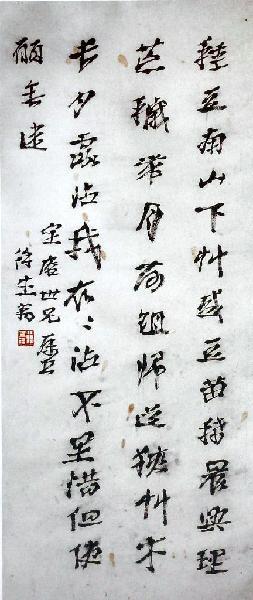 種豆南山下艸盛豆苗稀晨興理
荒穢帶月荷鉏歸道狹艸木
長夕露沾我衣〻沾不足惜但使
願無違
世兄
徐生翁